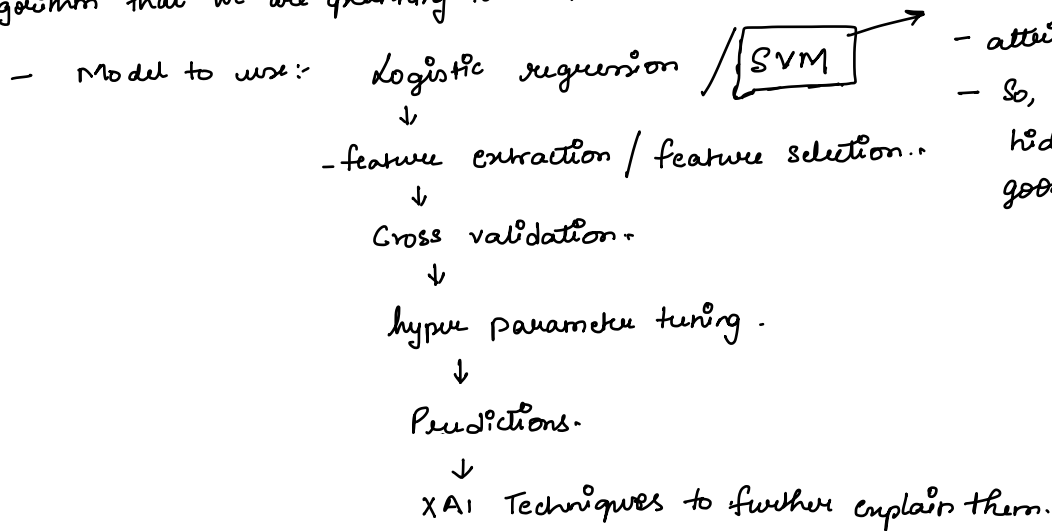 that we are planning to
- Model to use:- Logistic regression / SVM
- So,
↓
- feature extraction / feature selection..
↓
Cross validation.
↓
hyper parameter tuning.
↓
Predictions.
↓
XAI Techniques to further explain them.